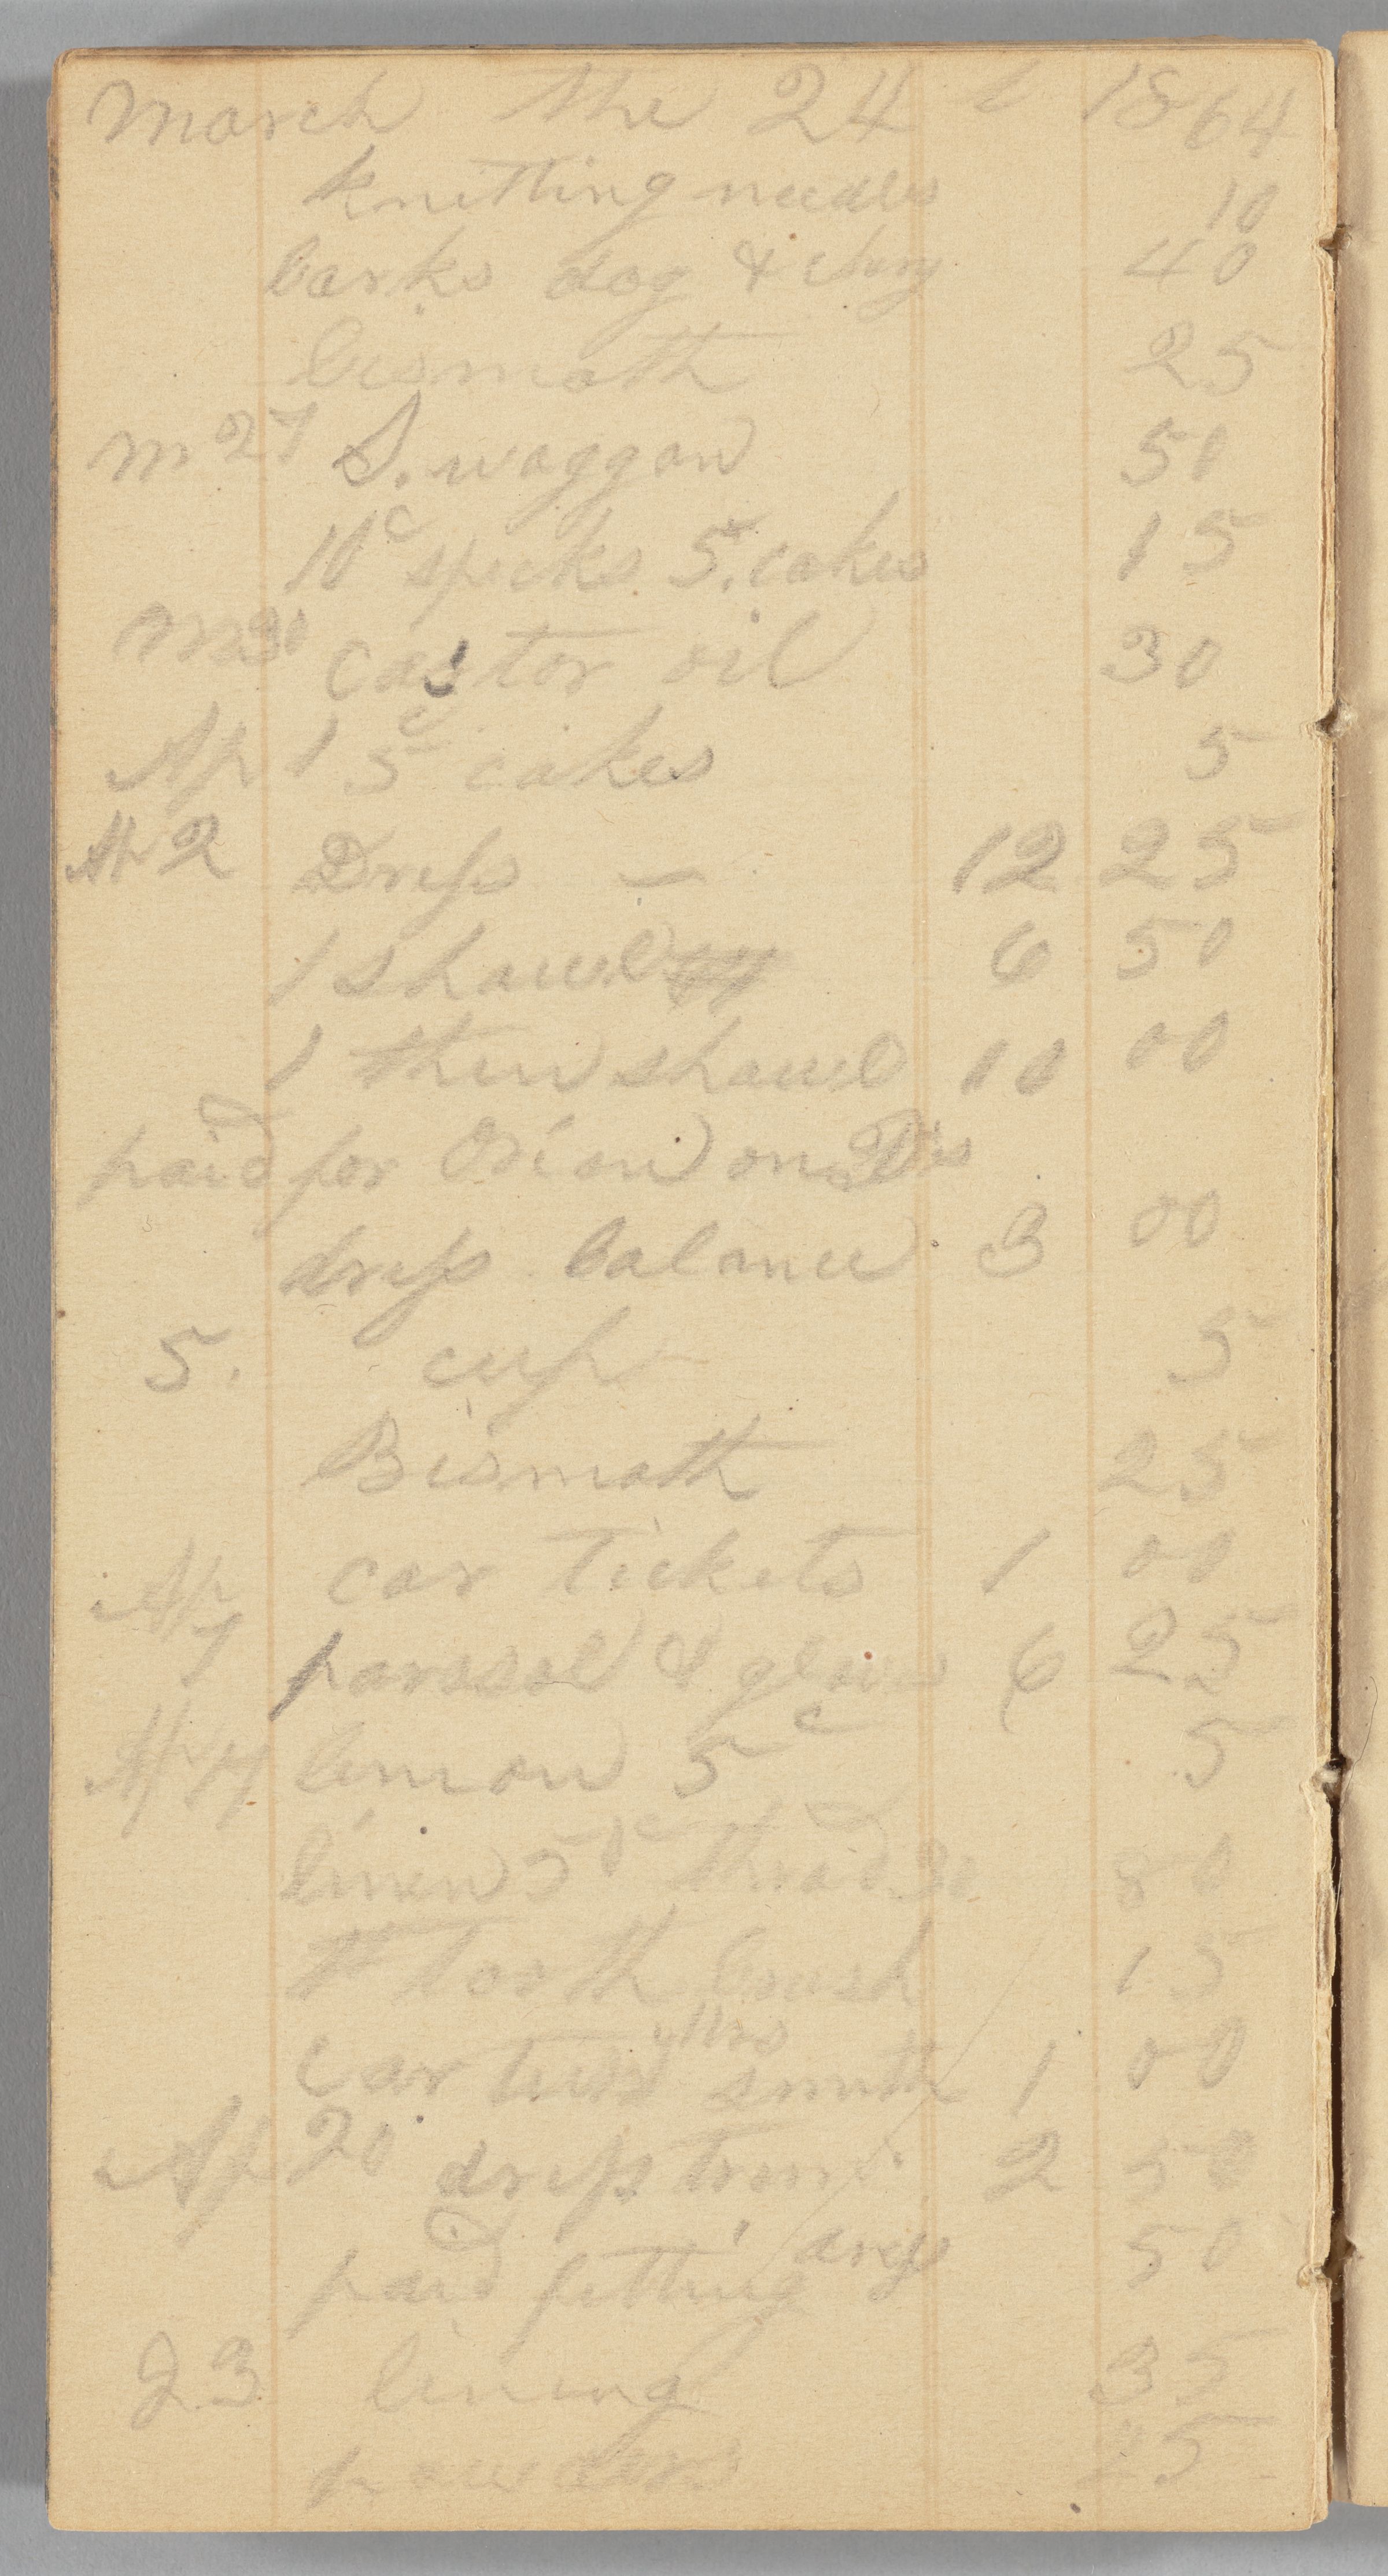 March the 24 t 1864
knitting needles 10
barks dog & chery 40
bismoth 25
M 27 S. waggon 50
10c specks 5. cakes 15
M 30 Castor oil 30
Ap 1 5c cakes 5
Ap 2 Dress — 12 25
1 shawl 6 50
1 thin shawl 10 00
paid for Orion on
dress balance 3 00
5. cup 5
Bismoth 25
car tickets 1 00
Ap 7 parasol & gloves 6 25
Ap 14 lemon 5c 5
linen 50 thread 30 80
tooth brush 15
Mrs
car smith 1 00
Ap 20 dress trim 2 50
paid fitting dress 50
23 lining 35
powders 25